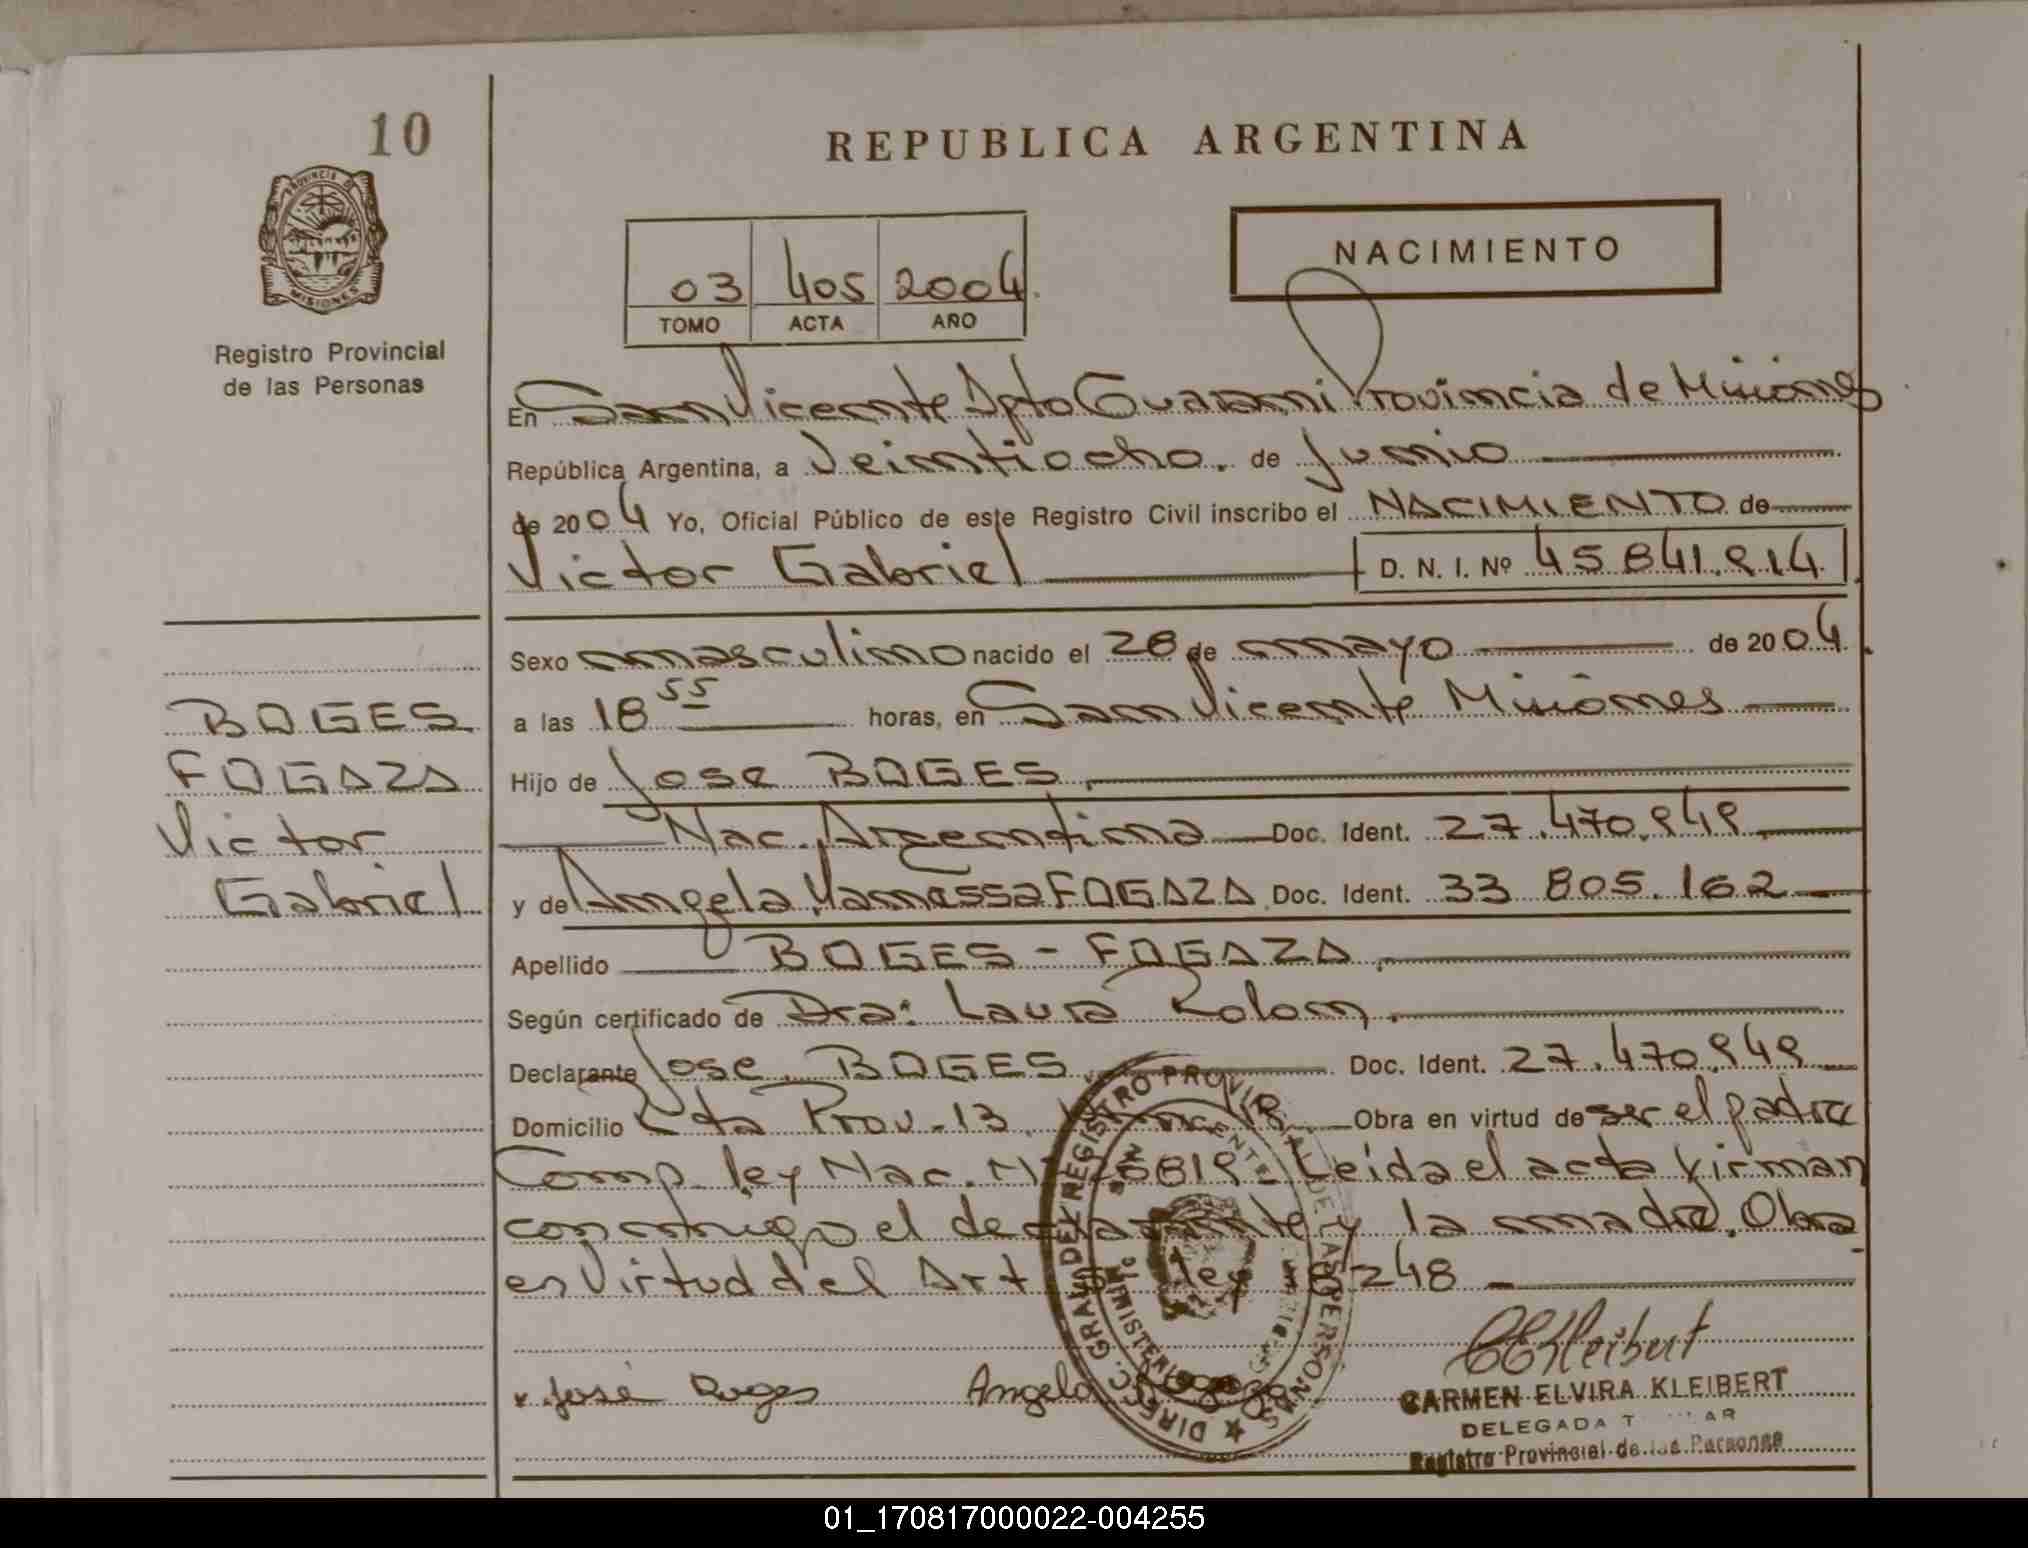 10
REPUBLICA ARGENTINA
PROVINCIA DE
MISIONES
Registro Provincial
de las Personas
03 405 2004
TOMO ACTA AÑO
NACIMIENTO
En San Vicente Dpto Guarani Provincia de Misiones
República Argentina, a Veintiocho de Junio
de 2004 Yo, Oficial Público de este Registro Civil inscribo el NACIMIENTO de
Victor Gabriel D. N. I. Nº 45 841.914
Sexo masculino nacido el 28 de mayo de 2004
a las 18 55 horas, en San Vicente Misiones
BOGES
FOGAZA
Victor
Gabriel
Hijo de Jose BOGES
Nac. Argentina Doc. Ident. 27.470.949
y de Angela Vanessa FOGAZA Doc. Ident. 33 805.162
Apellido BOGES - FOGAZA
Según certificado de Dra: Laura Rolon
Declarante Jose BOGES Doc. Ident. 27.470.949
Domicilio Prov. 13 Obra en virtud de ser el padre
Comp. ley Nac. Leida el acta firman
conmigo el declarante y la madre. Obra
en Virtud del Art ley 18248
José Boges Angela
CEKleibert
CARMEN ELVIRA KLEIBERT
DELEGADA
Registro Provincial de las Personas
DIREC. GRAL. DEL REGISTRO PROVINCIAL DE LAS PERSONAS
01_170817000022-004255